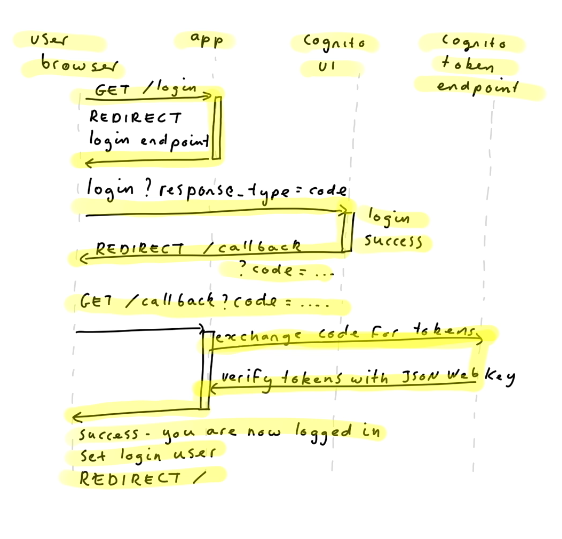 user browser
app
Cognito UI
Cognito token endpoint
GET /login
REDIRECT
login endpoint
login ? response_type = code
login
success
REDIRECT /callback
? code = ...
GET /callback ? code = ....
exchange code for tokens
verify tokens with JSON Web Key
success - you are now logged in
set login user
REDIRECT /